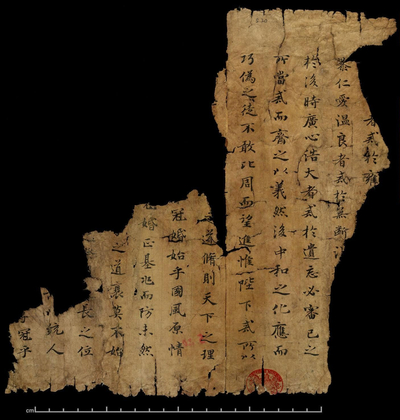 者戒於雍
暴仁愛温良者戒於無斷
於後時廣心浩大者戒於遺忘必審己之
所當戒而齊之以義然後中和之化應而
巧偽之徒不敢比周而望進惟陛下戒所以
道脩則天下之理
冠婚始乎國風原情
婚正基兆而防未然
之道衰莫不始
長之位
統人
冠乎
cm